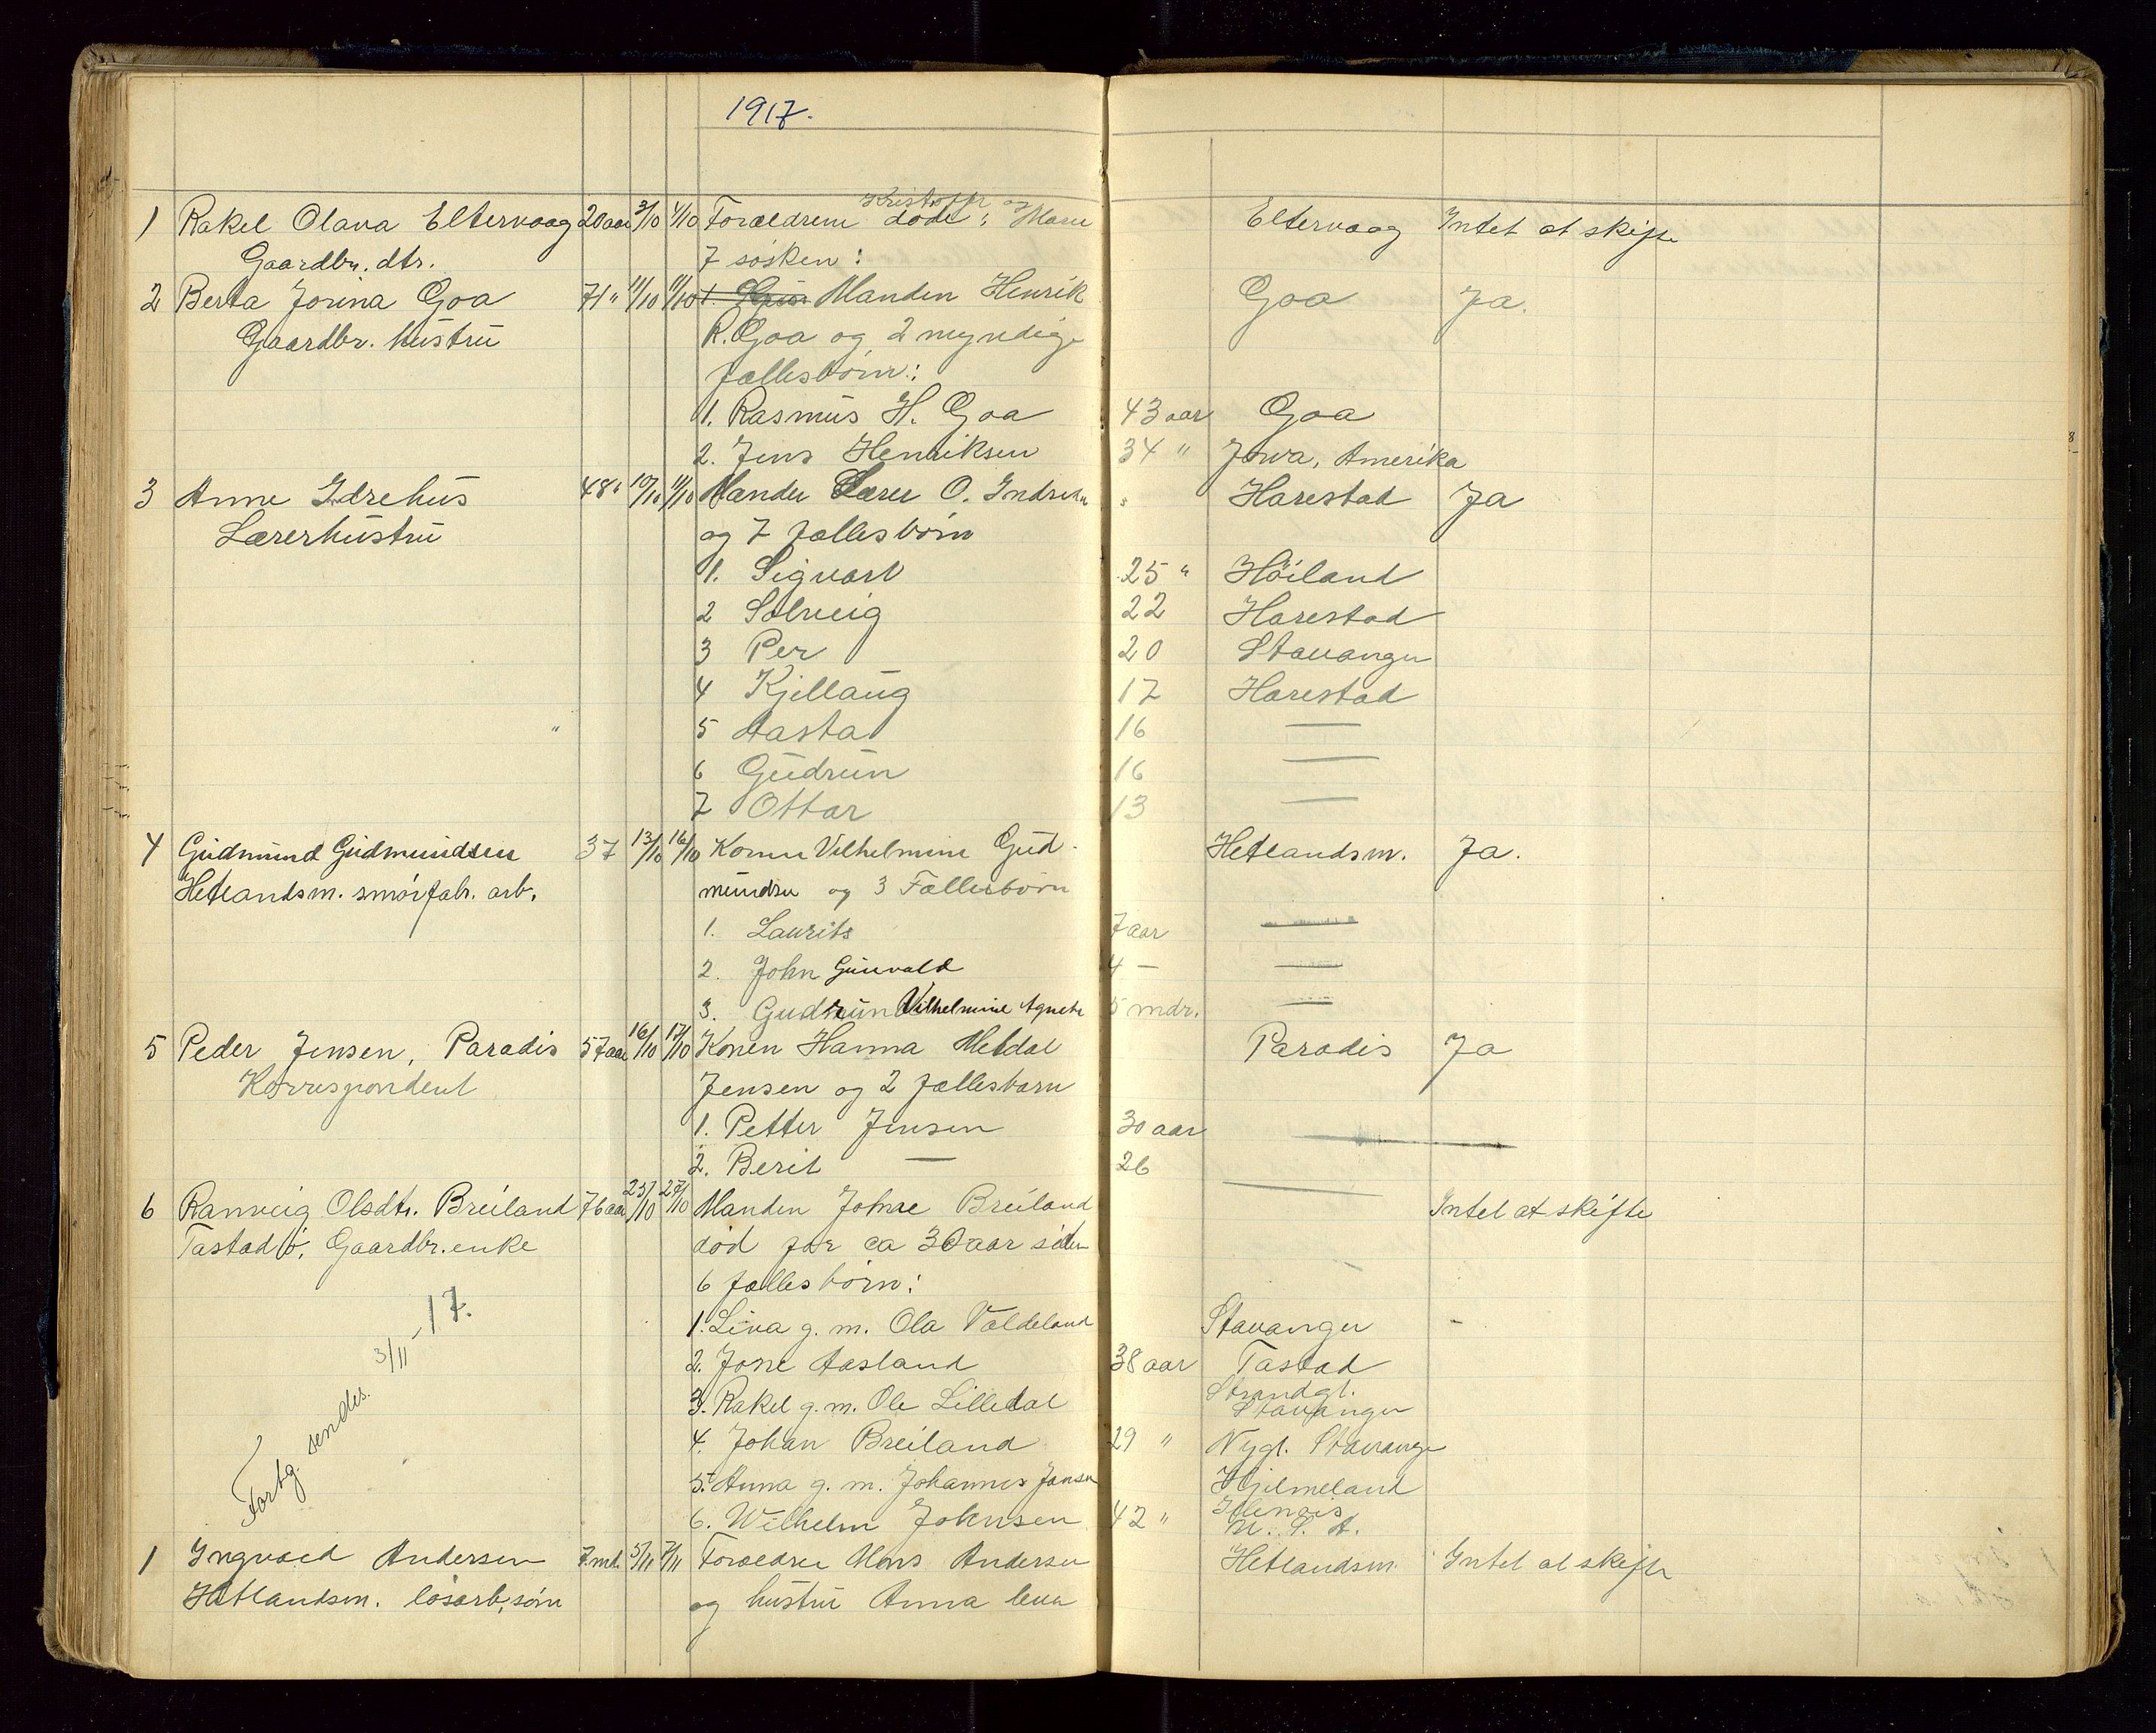 1917.
1 Rakel Olava Eltervaag 20 aar 3/10 4/10 Forældrene døde: Kristoffer og Marie Eltervaag Intet at skifte
Gaardbr. dtr. 7 søsken:
2 Berta Jorina Goa 71 " 11/10 11/10 Manden Henrik Goa Ja.
Gaardbr. hustru R. Goa og 2 myndige
fællesbørn:
1. Rasmus H. Goa 43 aar Goa
2. Jens Henriksen 34 " Jowa, Amerika
3 Anne Idrehus 48 " 10/10 11/10 Manden Lærer O. Indrehus Harestad Ja
Lærerhustru og 7 fællesbørn
1. Sigvart 25 " Høiland
2 Solveig 22 Harestad
3 Per 20 Stavanger
4 Kjellaug 17 Harestad
5 Aasta 16 —
6 Gudrun 16 —
7 Ottar 13 —
4 Gudmund Gudmundsen 37 13/10 16/10 Konen Vilhelmine Gud- Hetlandsm. Ja.
Hetlandsm. smørfabr. arb. mundsen og 3 Fællesbørn
1. Laurits 7 aar —
2. John Gunvald 4 — —
3. Gudrun Vilhelmine Agnete 5 mdr. —
5 Peder Jensen, Paradis 57 aar 16/10 17/10 Konen Hanna Meldal Paradis Ja
Korrespondent Jensen og 2 fællesbarn
1. Petter Jensen 30 aar —
2. Berit — 26 —
6 Ranveig Olsdtr. Breiland 76 aar 25/10 27/10 Manden Johne Breiland Intet at skifte
Tastad ø. Gaardbr. enke død for ca 30 aar siden
6 fællesbørn:
1. Lina g. m. Ola Valdeland Stavanger
2. Jone Aasland 38 aar Tastad
3. Rakel g. m. Ole Lilledal Strandgt. Stavanger
4. Johan Breiland 29 " Nygt. Stavanger
5. Anna g. m. Johannes Jansen Hjelmeland
6. Wilhelm Johnsen 42 " Illenois U. S. A.
Fortg. sendes. 3/11 - 17.
1 Ingvald Andersen 7 md. 5/11 7/11 Forældre Mons Andersen Hetlandsm. Intet at skifte
Hetlandsm. løsarb. søn og hustru Anna